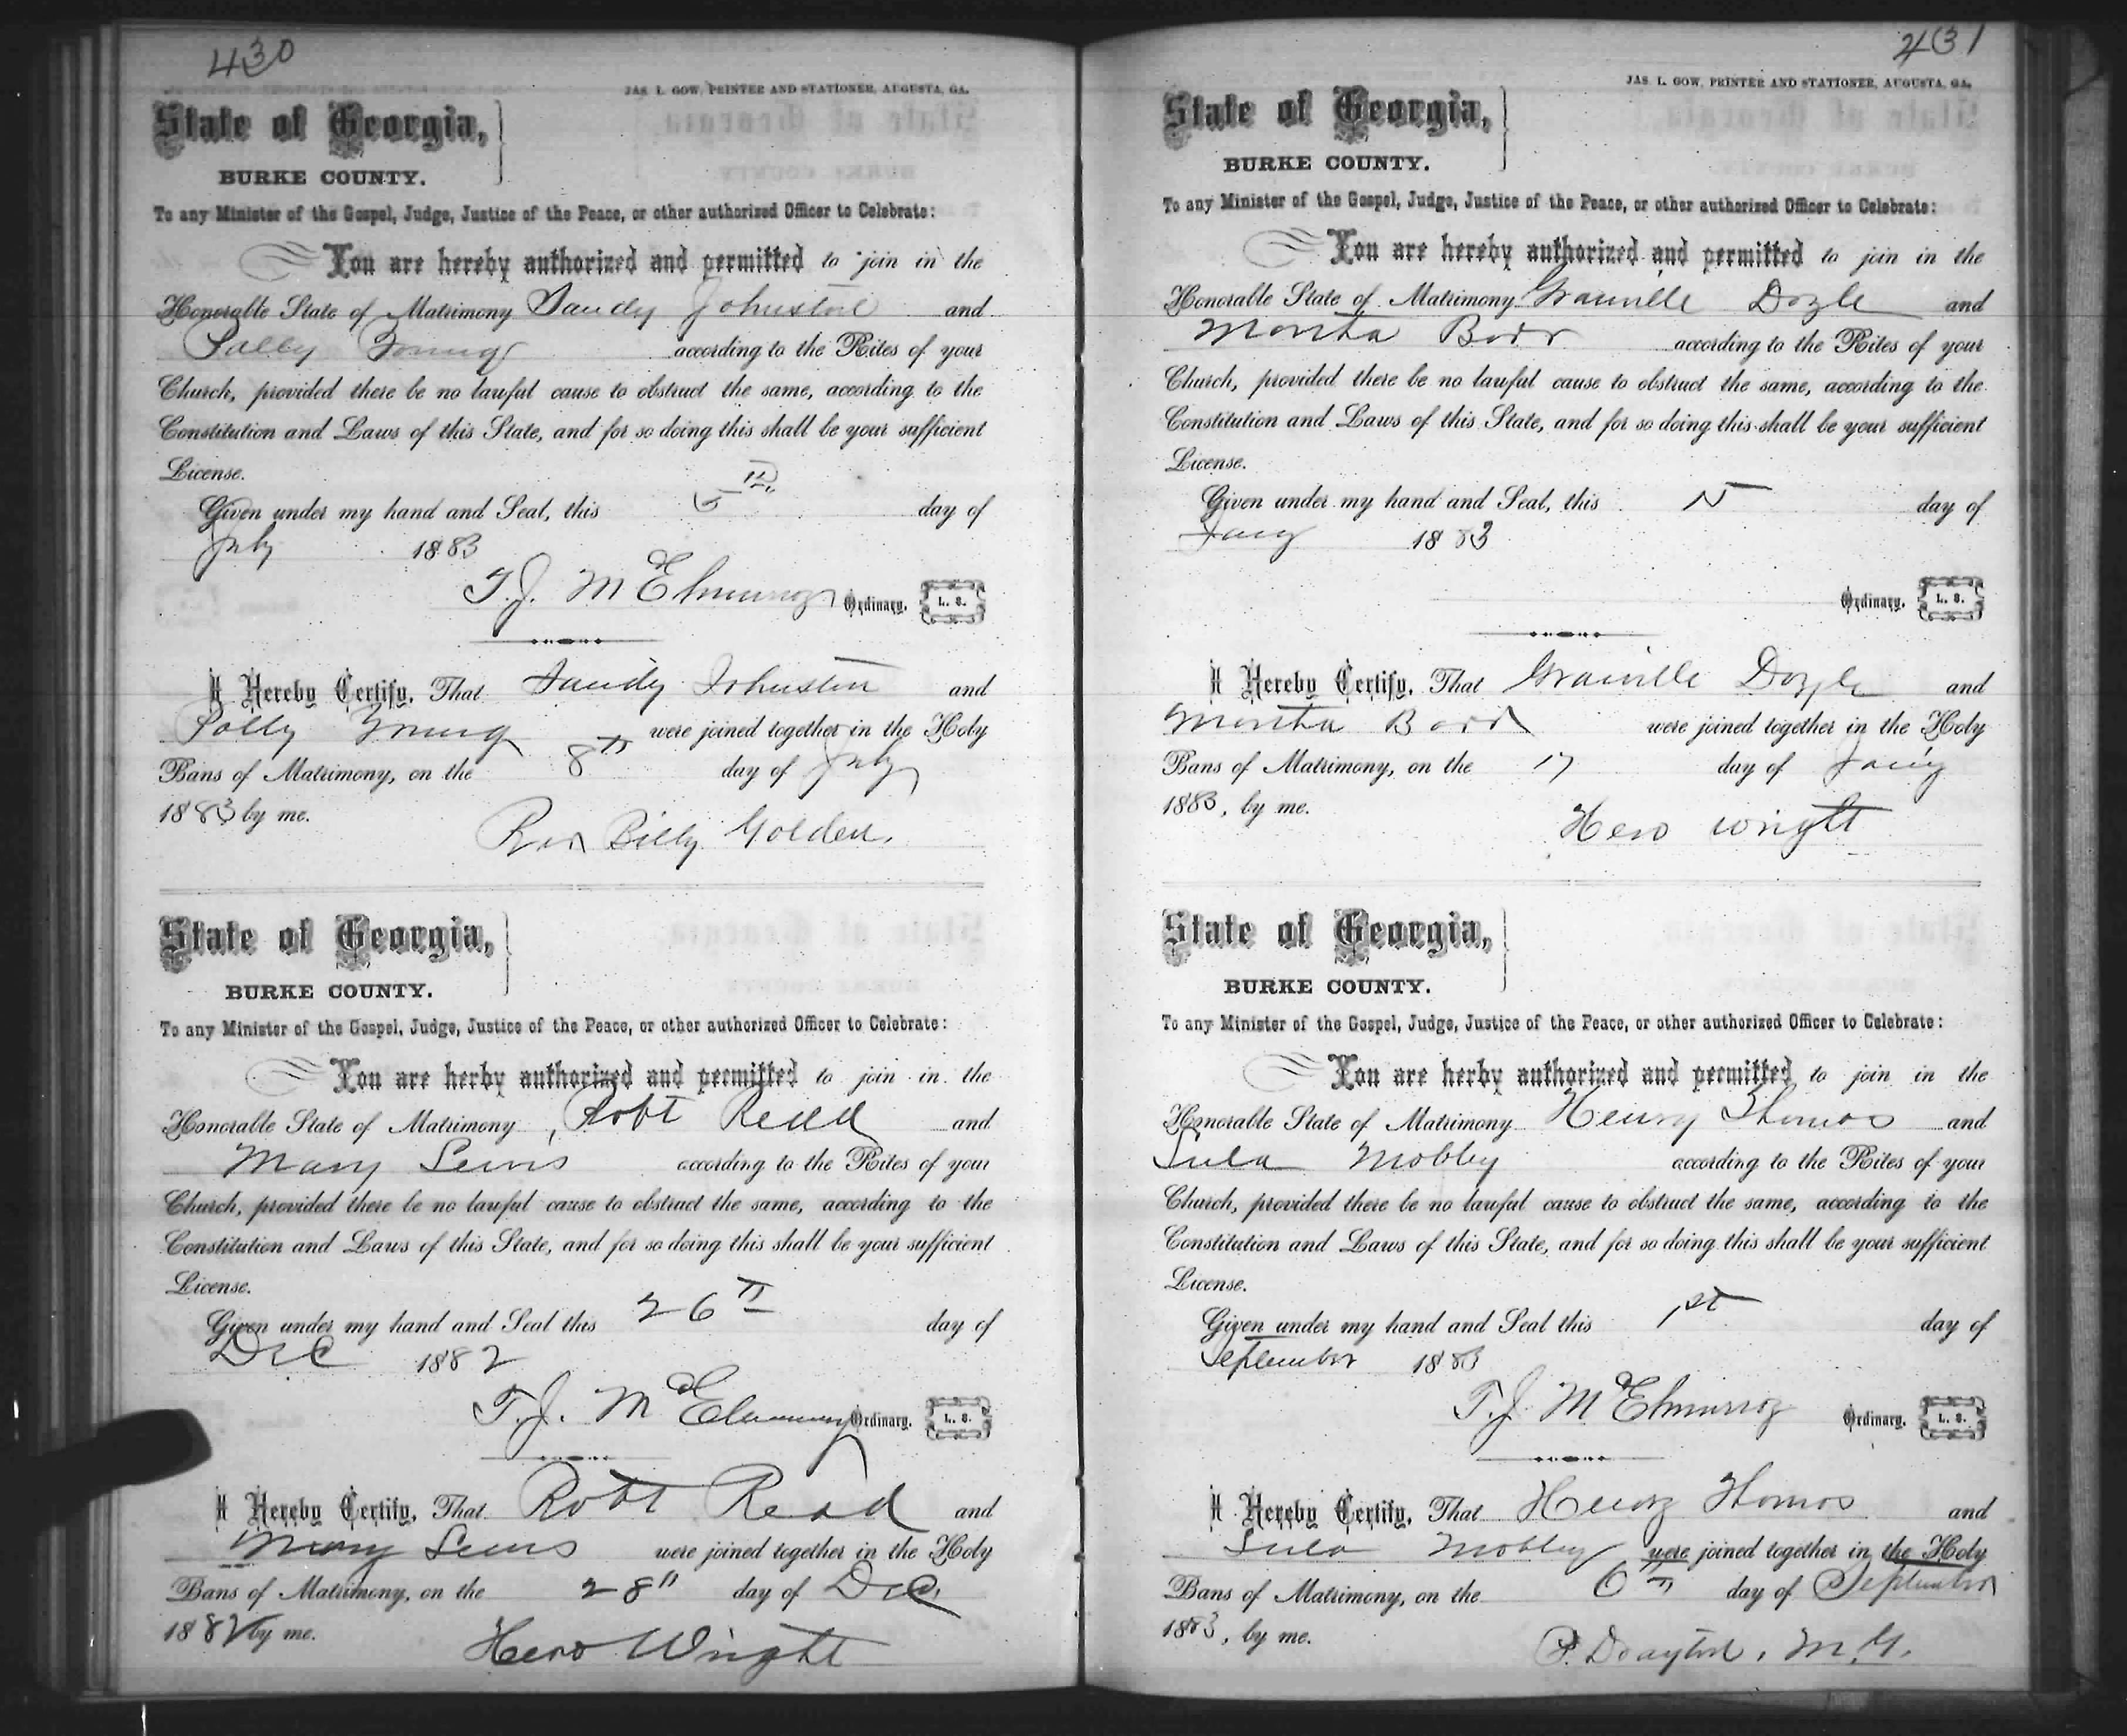 430
JAS. L. GOW, PRINTER AND STATIONER, AUGUSTA, GA.
State of Georgia,
BURKE COUNTY.
To any Minister of the Gospel, Judge, Justice of the Peace, or other authorized Officer to Celebrate:
You are hereby authorized and permitted to join in the
Honorable State of Matrimony Sandy Johnston and
Polly Young according to the Rites of your
Church, provided there be no lawful cause to obstruct the same, according to the
Constitution and Laws of this State, and for so doing this shall be your sufficient
License.
Given under my hand and Seal, this 5th day of
July 1883
T. J. McElmurray Ordinary. L. S.
I Hereby Certify, That Sandy Johnston and
Polly Young were joined together in the Holy
Bans of Matrimony, on the 8th day of July
1883 by me.
Rev Billy Golden.
State of Georgia,
BURKE COUNTY.
To any Minister of the Gospel, Judge, Justice of the Peace, or other authorized Officer to Celebrate:
You are herby authorized and permitted to join in the
Honorable State of Matrimony, Robt Read and
Mary Lewis according to the Rites of your
Church, provided there be no lawful cause to obstruct the same, according to the
Constitution and Laws of this State, and for so doing this shall be your sufficient
License.
Given under my hand and Seal this 26th day of
Dec 1882
T. J. McElmurray Ordinary. L. S.
I Hereby Certify, That Robt Read and
Mary Lewis were joined together in the Holy
Bans of Matrimony, on the 28th day of Dec,
1882 by me.
Hero Wright
431
JAS. L. GOW, PRINTER AND STATIONER, AUGUSTA, GA.
State of Georgia,
BURKE COUNTY.
To any Minister of the Gospel, Judge, Justice of the Peace, or other authorized Officer to Celebrate:
You are hereby authorized and permitted to join in the
Honorable State of Matrimony Granville Doyle and
Martha according to the Rites of your
Church, provided there be no lawful cause to obstruct the same, according to the
Constitution and Laws of this State, and for so doing this shall be your sufficient
License.
Given under my hand and Seal, this day of
Jany 1883
Ordinary. L. S.
I Hereby Certify, That Granville Doyle and
Martha were joined together in the Holy
Bans of Matrimony, on the 17 day of Jany
1883, by me.
Hero Wright
State of Georgia,
BURKE COUNTY.
To any Minister of the Gospel, Judge, Justice of the Peace, or other authorized Officer to Celebrate:
You are herby authorized and permitted to join in the
Honorable State of Matrimony Henry Thomas and
Lula Mobley according to the Rites of your
Church, provided there be no lawful cause to obstruct the same, according to the
Constitution and Laws of this State, and for so doing this shall be your sufficient
License.
Given under my hand and Seal this 1st day of
September 1883
T. J. McElmurray Ordinary. L. S.
I Hereby Certify, That Henry Thomas and
Lula Mobley were joined together in the Holy
Bans of Matrimony, on the 6th day of September
1883, by me.
P. Drayton, M. G.